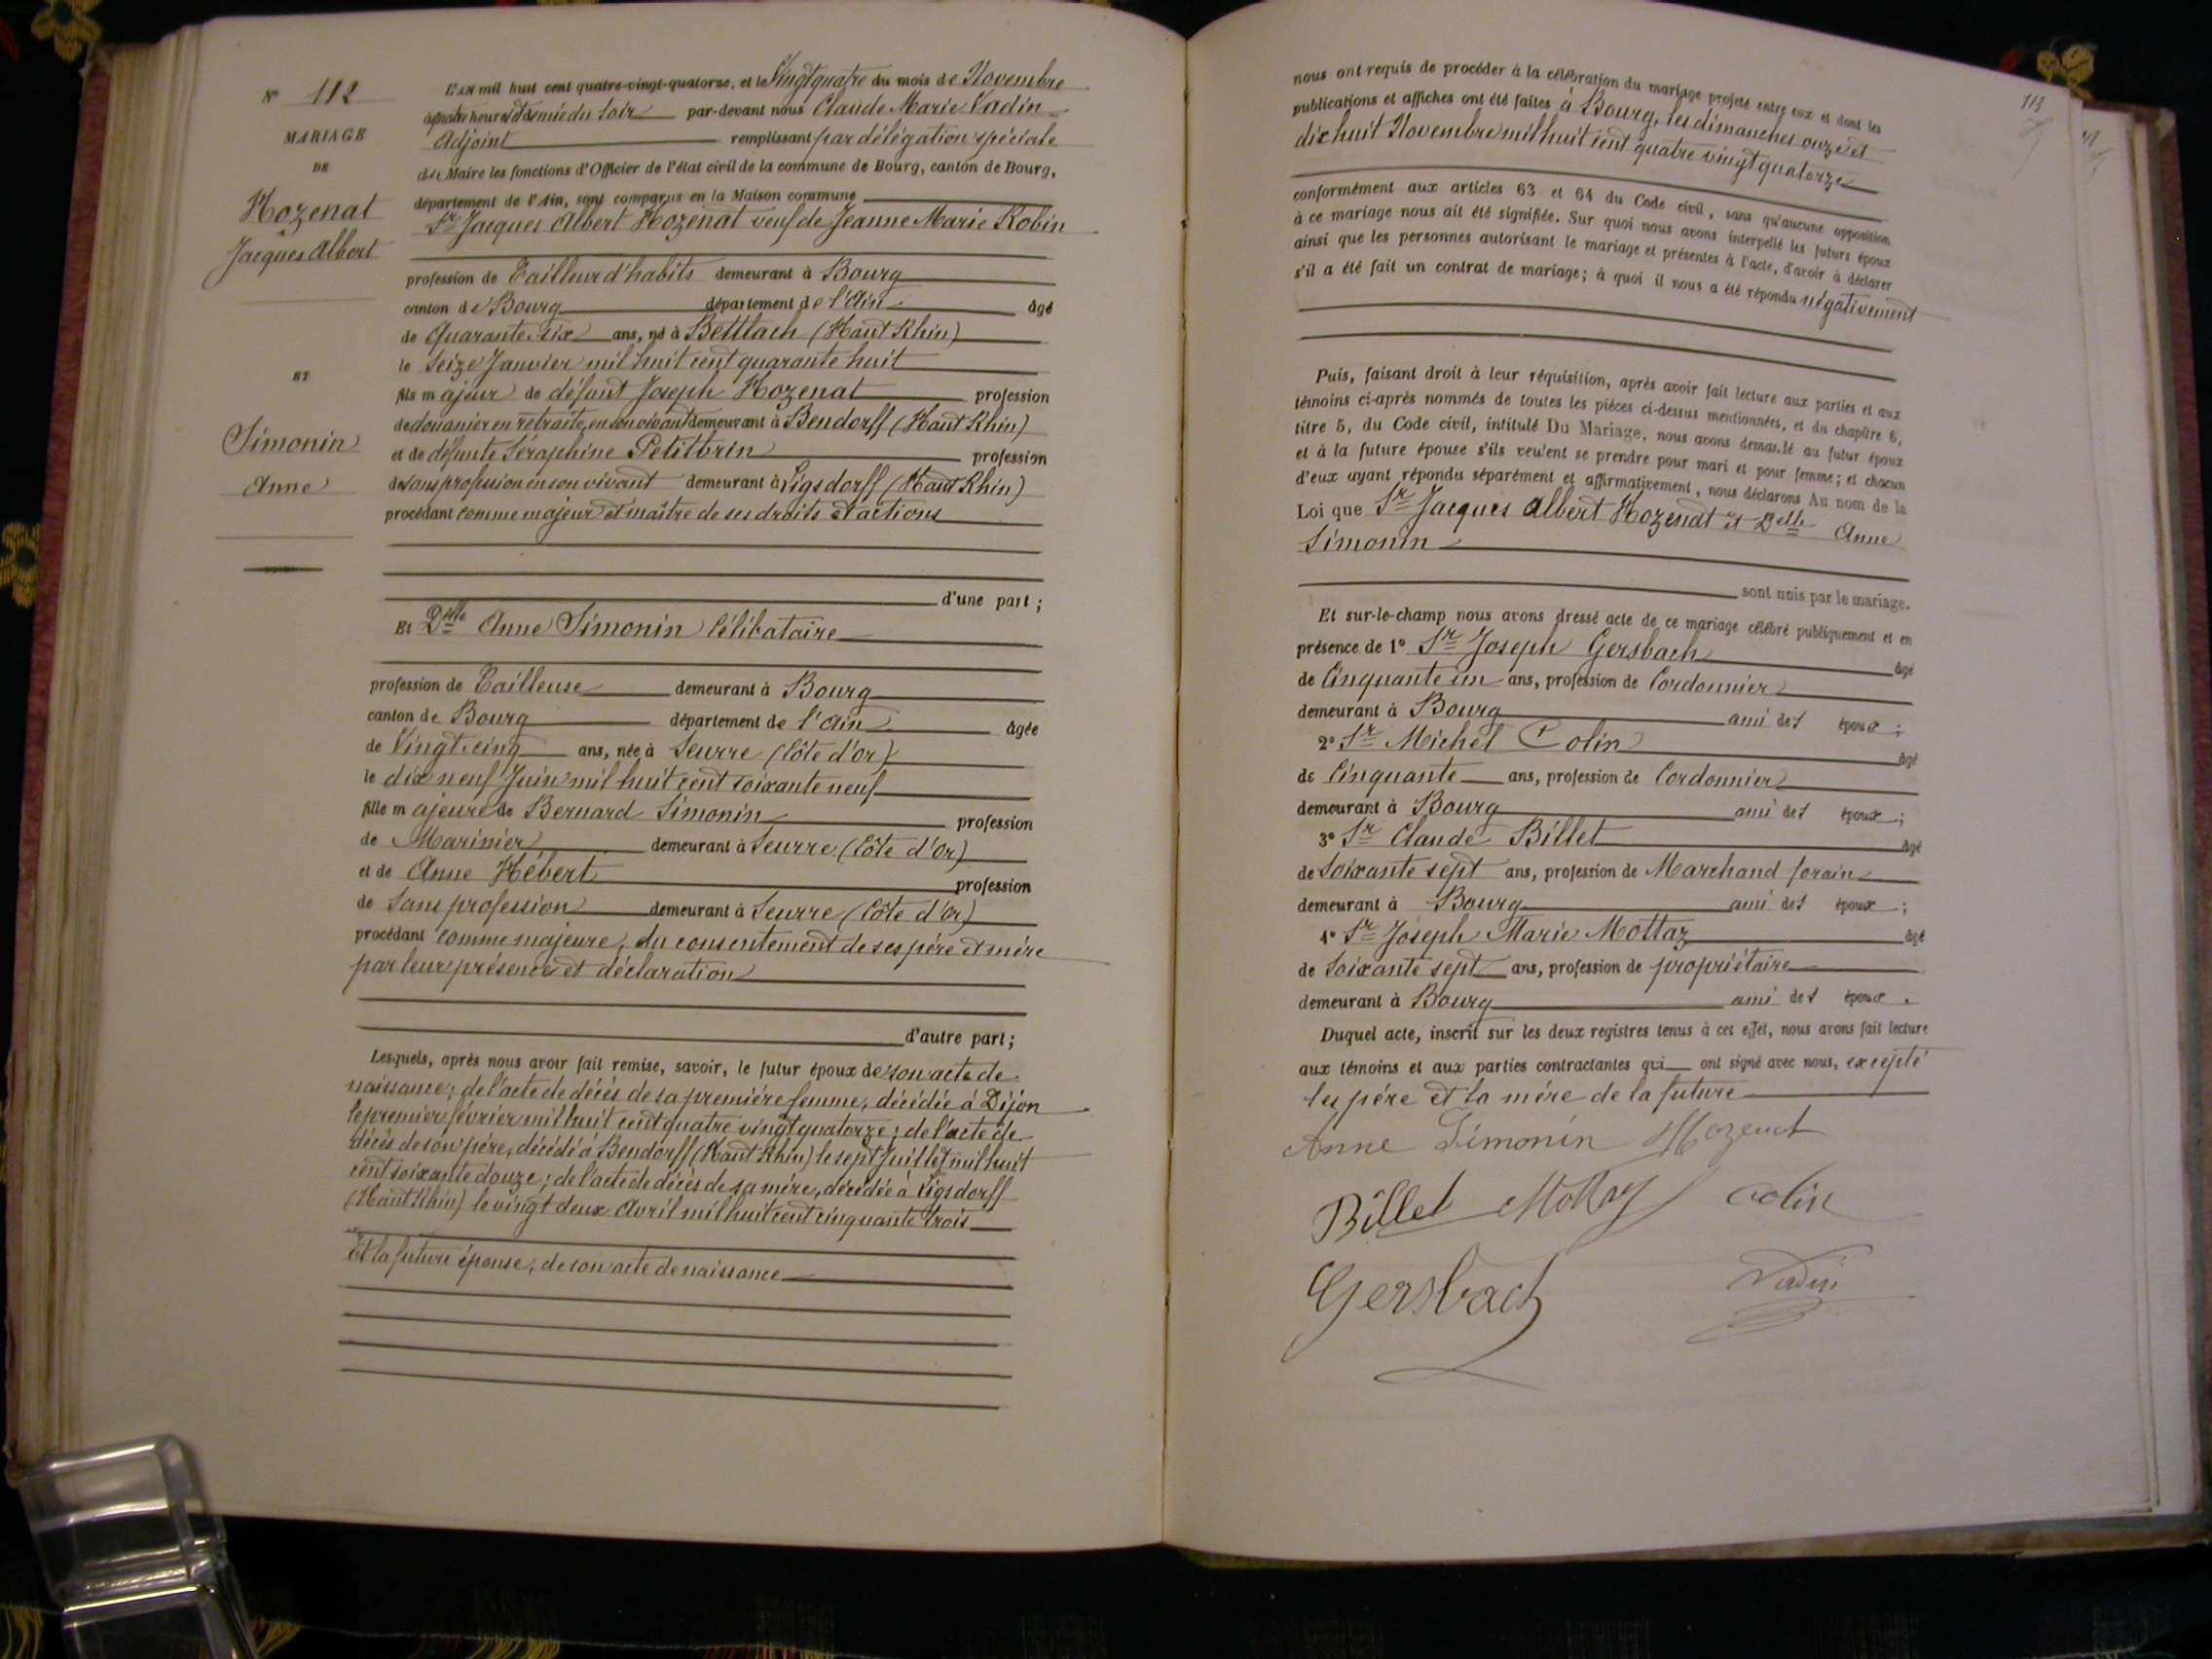 N° 112
MARIAGE
DE
Hozenat
Jacques Albert
ET
Simonin
Anne
L'an mil huit cent quatre-vingt-quatorze, et le Vingt quatre du mois de Novembre
à quatre heures et demie du soir par-devant nous Claude Marie Vadin
Adjoint remplissant par délégation spéciale
du Maire les fonctions d'Officier de l'état civil de la commune de Bourg, canton de Bourg,
département de l'Ain, sont comparus en la Maison commune
Sr Jacques Albert Hozenat veuf de Jeanne Marie Robin
profession de Tailleur d'habits demeurant à Bourg
canton de Bourg département de l'Ain âgé
de Quarante six ans, né à Bettlach (Haut Rhin)
le Seize Janvier mil huit cent quarante huit
fils majeur de défunt Joseph Hozenat profession
de douanier en retraite, en son vivant demeurant à Bendorff (Haut Rhin)
et de défunte Séraphine Petitbrin profession
de sans profession en son vivant demeurant à Ligsdorff (Haut Rhin)
procédant comme majeur et maître de ses droits et actions
d'une part ;
Et Delle Anne Simonin Célibataire
profession de Tailleuse demeurant à Bourg
canton de Bourg département de l'Ain âgée
de Vingt cinq ans, née à Seurre (Côte d'Or)
le dix neuf Juin mil huit cent soixante neuf
fille majeure de Bernard Simonin profession
de Marinier demeurant à Seurre (Côte d'Or)
et de Anne Hébert profession
de Sans profession demeurant à Seurre (Côte d'Or)
procédant comme majeure, du consentement de ses père et mère
par leur présence et déclaration
d'autre part ;
Lesquels, après nous avoir fait remise, savoir, le futur époux de son acte de
naissance ; de l'acte de décès de sa première femme, décédée à Dijon
le premier février mil huit cent quatre vingt quatorze ; de l'acte de
décès de son père, décédé à Bendorff (Haut Rhin) le sept Juillet mil huit
cent soixante douze ; de l'acte de décès de sa mère, décédée à Ligsdorff
(Haut Rhin) le vingt deux Avril mil huit cent cinquante trois
Et la future épouse, de son acte de naissance
113
nous ont requis de procéder à la célébration du mariage projeté entre eux et dont les
publications et affiches ont été faites à Bourg, les dimanches onze et
dix huit Novembre mil huit cent quatre vingt quatorze
conformément aux articles 63 et 64 du Code civil, sans qu'aucune opposition
à ce mariage nous ait été signifiée. Sur quoi nous avons interpellé les futurs époux
ainsi que les personnes autorisant le mariage et présentes à l'acte, d'avoir à déclarer
s'il a été fait un contrat de mariage ; à quoi il nous a été répondu négativement
Puis, faisant droit à leur réquisition, après avoir fait lecture aux parties et aux
témoins ci-après nommés de toutes les pièces ci-dessus mentionnées, et du chapitre 6,
titre 5, du Code civil, intitulé Du Mariage, nous avons demandé au futur époux
et à la future épouse s'ils veulent se prendre pour mari et pour femme ; et chacun
d'eux ayant répondu séparément et affirmativement, nous déclarons Au nom de la
Loi que Sr Jacques Albert Hozenat et Delle Anne
Simonin
sont unis par le mariage.
Et sur-le-champ nous avons dressé acte de ce mariage célébré publiquement et en
présence de 1° Sr Joseph Gersbach âgé
de Cinquante un ans, profession de Cordonnier
demeurant à Bourg ami des époux ;
2° Sr Michel Colin âgé
de Cinquante ans, profession de Cordonnier
demeurant à Bourg ami des époux ;
3° Sr Claude Billet âgé
de Soixante sept ans, profession de Marchand forain
demeurant à Bourg ami des époux ;
4° Sr Joseph Marie Mottaz âgé
de Soixante sept ans, profession de propriétaire
demeurant à Bourg ami des époux.
Duquel acte, inscrit sur les deux registres tenus à cet effet, nous avons fait lecture
aux témoins et aux parties contractantes qui ont signé avec nous, excepté
les père et la mère de la future
Anne Simonin Hozenat
Billet Mottaz Colin
Gersbach Vadin